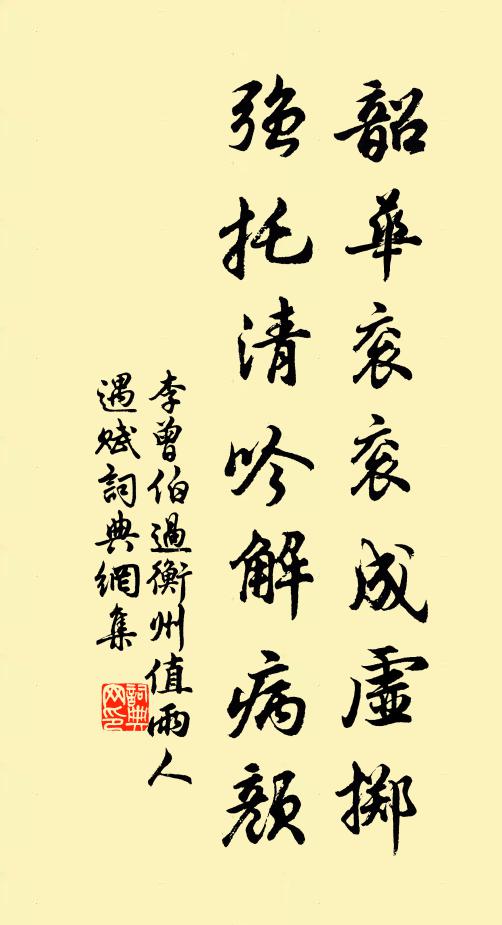 韶華衮衮成虛擲
强托清吟解病顏
李曾伯過衡州值雨人
遇賦詞典網集
詞典网印